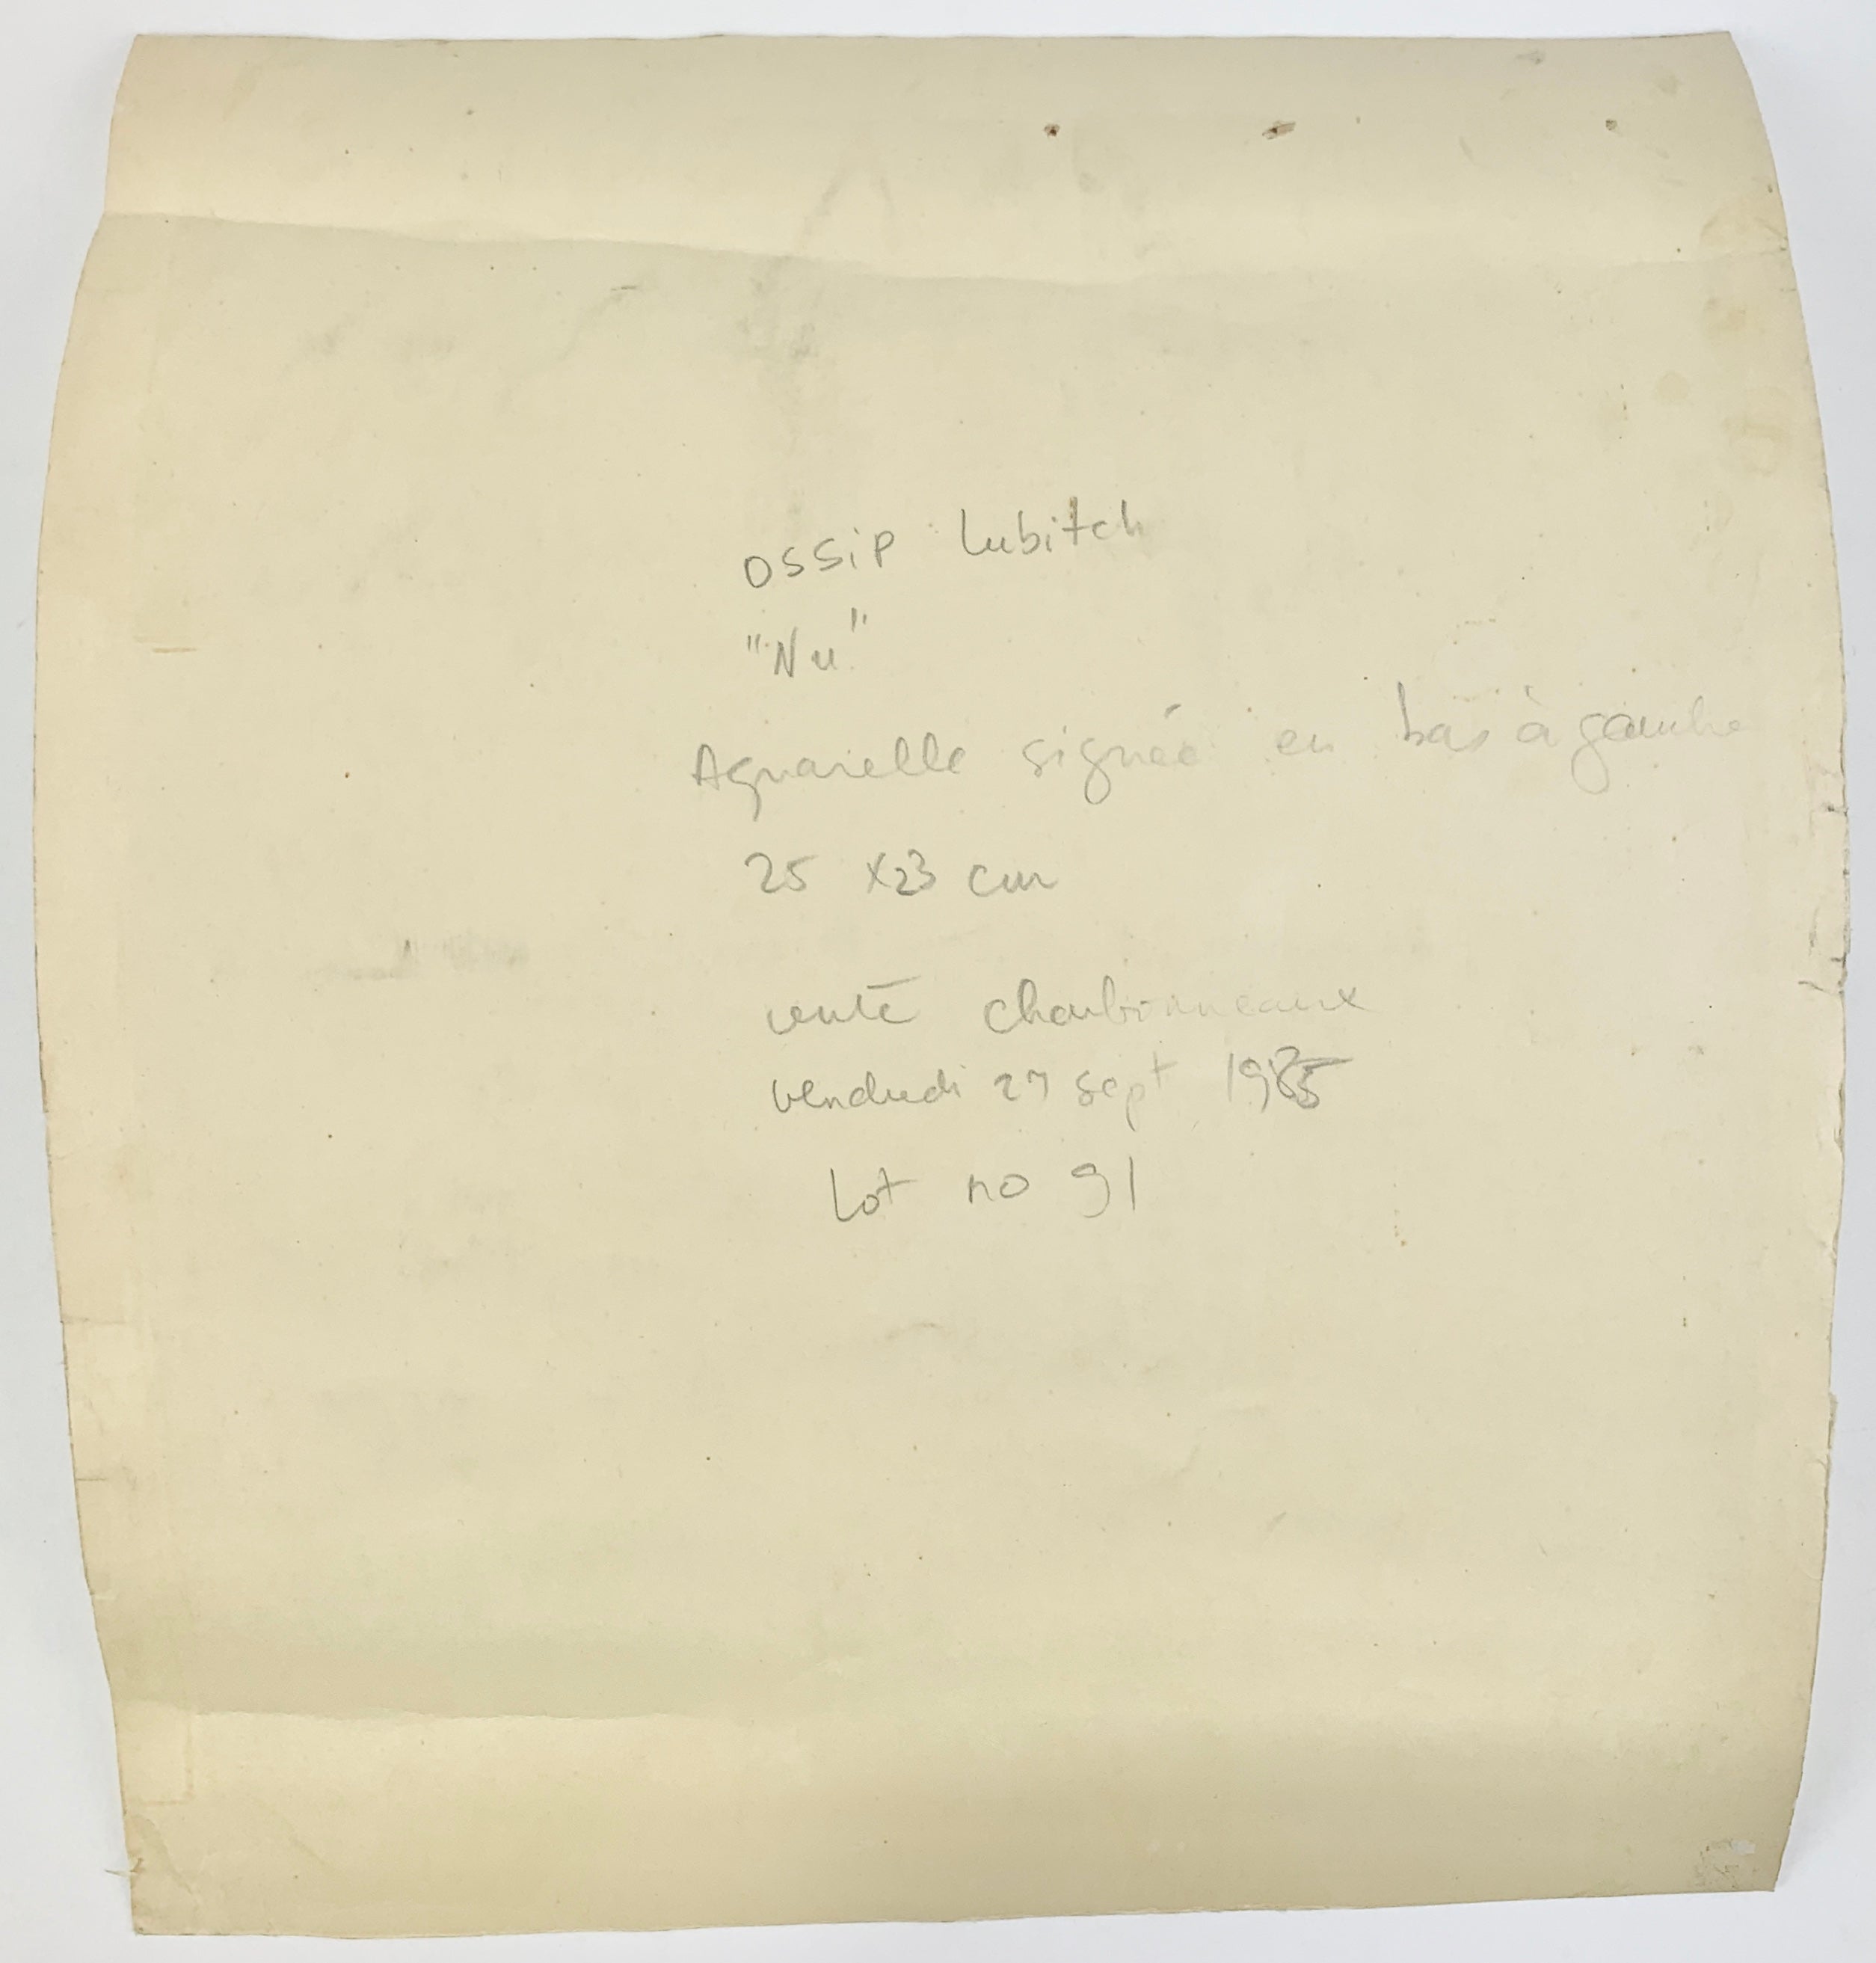 Ossip Lubitch
"Nu"
Aquarelle signée en bas à gauche
25 x23 cm
vente charbonneaux
vendredi 27 sept 1985
Lot no 91